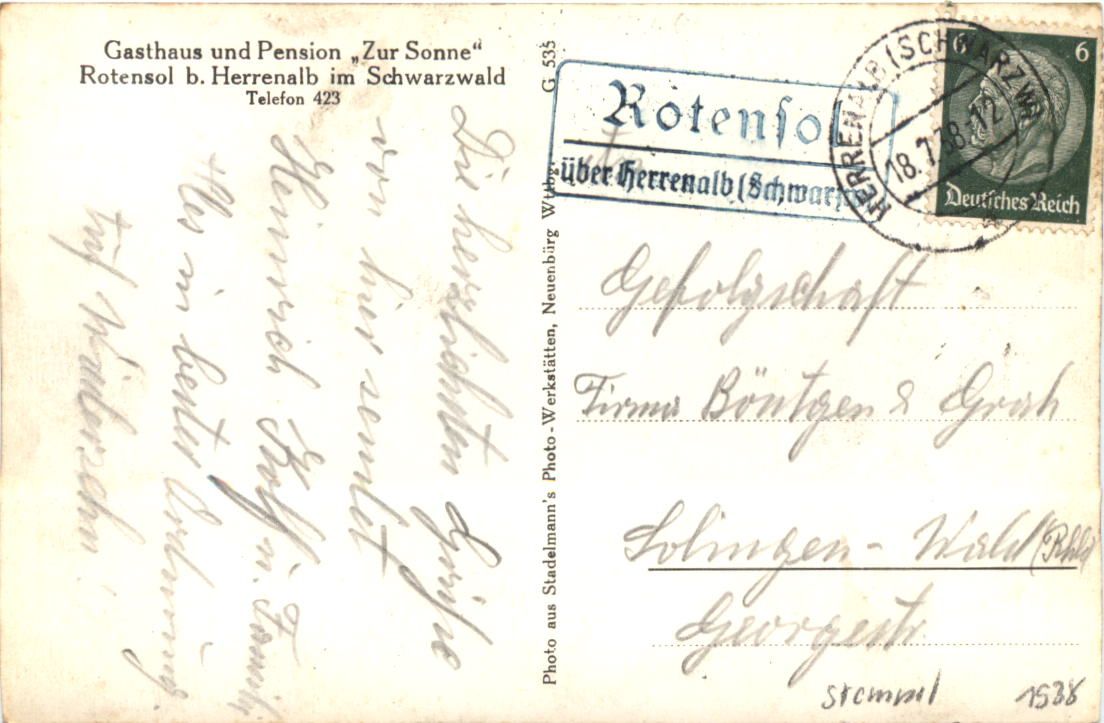 Gasthaus und Pension „Zur Sonne“
Rotensol b. Herrenalb im Schwarzwald
Telefon 423
Die herzlichsten Grüße
von hier sendet
Heinrich u. Familie
Alles in bester Ordnung
Auf Wiedersehn!
Photo aus Stadelmann's Photo-Werkstätten, Neuenbürg Wttbg.
G 535
Rotensol
über Herrenalb (Schwarzw
HERRENALB (SCHWARZW)
18.7.38.-12
6
6
Deutsches Reich
Gefolgschaft
Firma Böntgen & Grah
Solingen - Wald (Rhld
Georgestr.
Stempel 1938